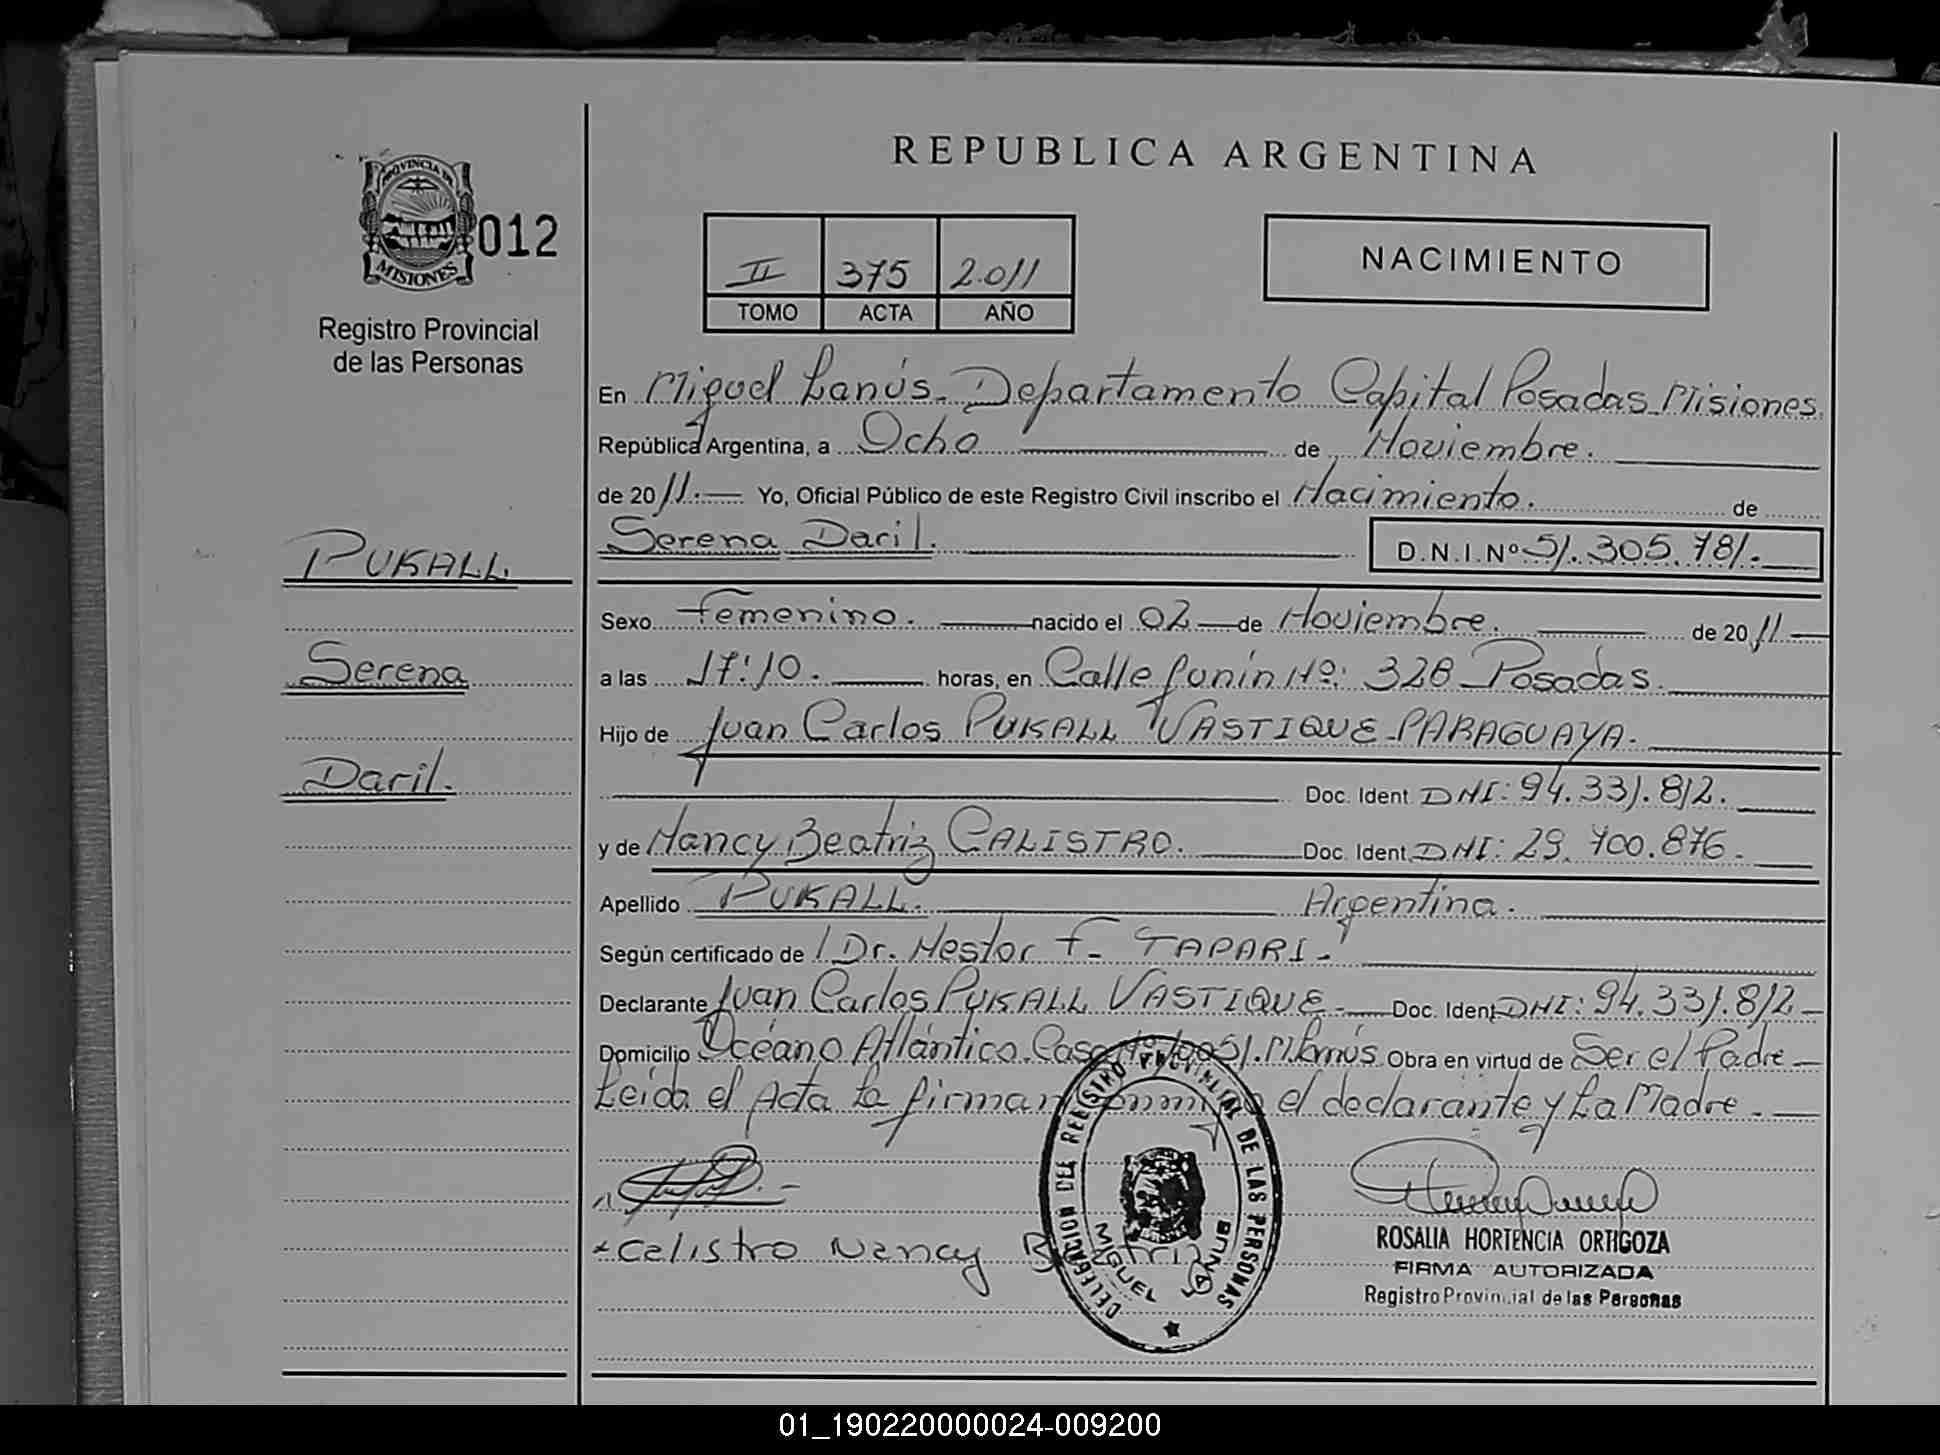 REPUBLICA ARGENTINA
PROVINCIA DE
MISIONES
012
Registro Provincial
de las Personas
II 375 2.011
TOMO ACTA AÑO
NACIMIENTO
En Miguel Lanús - Departamento Capital Posadas Misiones
República Argentina, a Ocho de Noviembre.
de 20 11.- Yo, Oficial Público de este Registro Civil inscribo el Nacimiento. de
Serena Daril. D.N.I.Nº 51.305.781.-
PUKALL.
Serena
Daril.
Sexo Femenino. nacido el 02 de Noviembre. de 20 11
a las 17:10. horas, en Calle Junín Nº: 328 Posadas.
Hijo de Juan Carlos PUKALL VASTIQUE - PARAGUAYA.
Doc. Ident. DNI: 94.331.812.
y de Nancy Beatriz CALISTRO. Doc. Ident. DNI: 29.700.876.
Apellido PUKALL. Argentina.
Según certificado de Dr. Nestor F. TAPARI.
Declarante Juan Carlos PUKALL VASTIQUE - Doc. Ident. DNI: 94.331.812
Domicilio Océano Atlántico Casa Nº M. Lanús Obra en virtud de Ser el Padre -
Leida el Acta la firman conmigo el declarante y La Madre.
Calistro Nancy Beatriz
DELEGACION DEL REGISTRO PROVINCIAL DE LAS PERSONAS
MIGUEL LANUS
ROSALIA HORTENCIA ORTIGOZA
FIRMA AUTORIZADA
Registro Provincial de las Personas
01_190220000024-009200